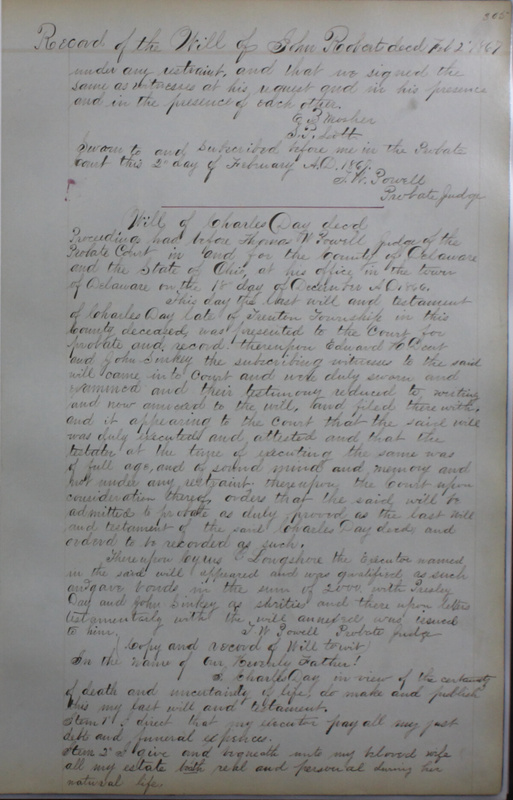 305
Record of the Will of John Robert decd Feb 2d 1867
under any restraint, and that we signed the
same as witnesses at his request and in his presence
and in the presence of each other.
Mosher
Lott
Sworn to and Subscribed before me in the Probate
Court this 2d day of February A.D. 1867.
T. W. Powell
Probate Judge
Will of Charles Day decd
Proceedings had before Thomas W Powell Judge of the
Probate Court in and for the County of Delaware
and the State of Ohio, at his office in the town
of Delaware on the 18 day of December A.D. 1866.
This day the last will and testament
of Charles Day late of Trenton Township in this
County deceased, was presented to the Court for
probate and record thereupon Edward H Bent
and John Sinkey the subscribing witnesses to the said
will came into Court and were duly sworn and
examined and their testimony reduced to writing
and now annexed to the will, and filed therewith,
and it appearing to the Court that the said will
was duly executed and attested and that the
testator at the time of executing the same was
of full age, and of sound mind and memory and
not under any restraint. thereupon the Court upon
consideration thereof, orders that the said will be
admitted to probate as duly proved as the last will
and testament of the said Charles Day decd, and
ordered to be recorded as such.
Thereupon Cyrus Longshore the Executor named
in the said will appeared and was qualified as such
and gave bonds in the sum of 2000 with Presley
Day and John Sinkey as sureties and there upon letters
testamentary with the will annexed was issued
to him. T. W Powell Probate Judge
(Copy and record of Will to wit)
In the Name of Our Heavenly Father!
I Charles Day in view of the certainty
of death and uncertainty of life, do make and publish
this my last will and testament.
Item 1st I direct that my executor pay all my just
debts and funeral expences.
Item 2d I give and bequeath unto my beloved wife
all my estate both real and personal during her
natural life.